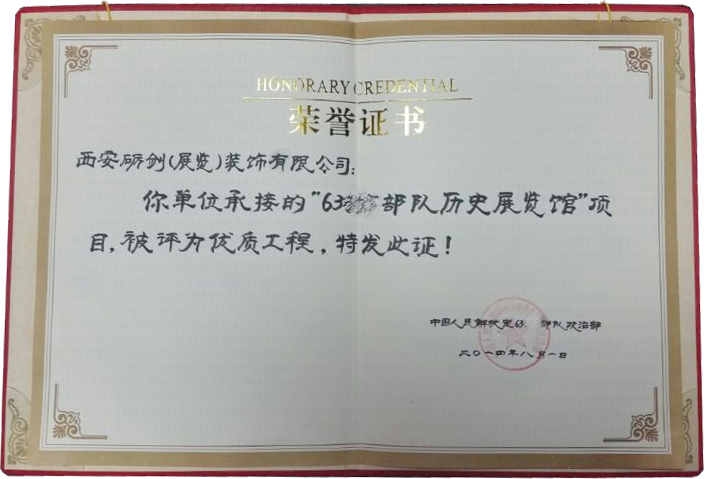 HONORARY CREDENTIAL
荣誉证书
西安砺创(展览)装饰有限公司:
你单位承接的“63 部队历史展览馆”项
目,被评为优质工程,特发此证!
中国人民解放军63 部队政治部
二〇一四年八月一日